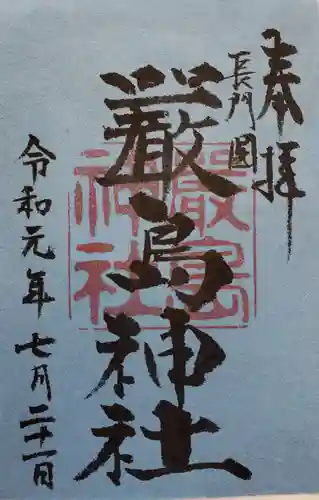 奉拝
長門國
嚴島神社
嚴島神社
令和元年七月二十一日